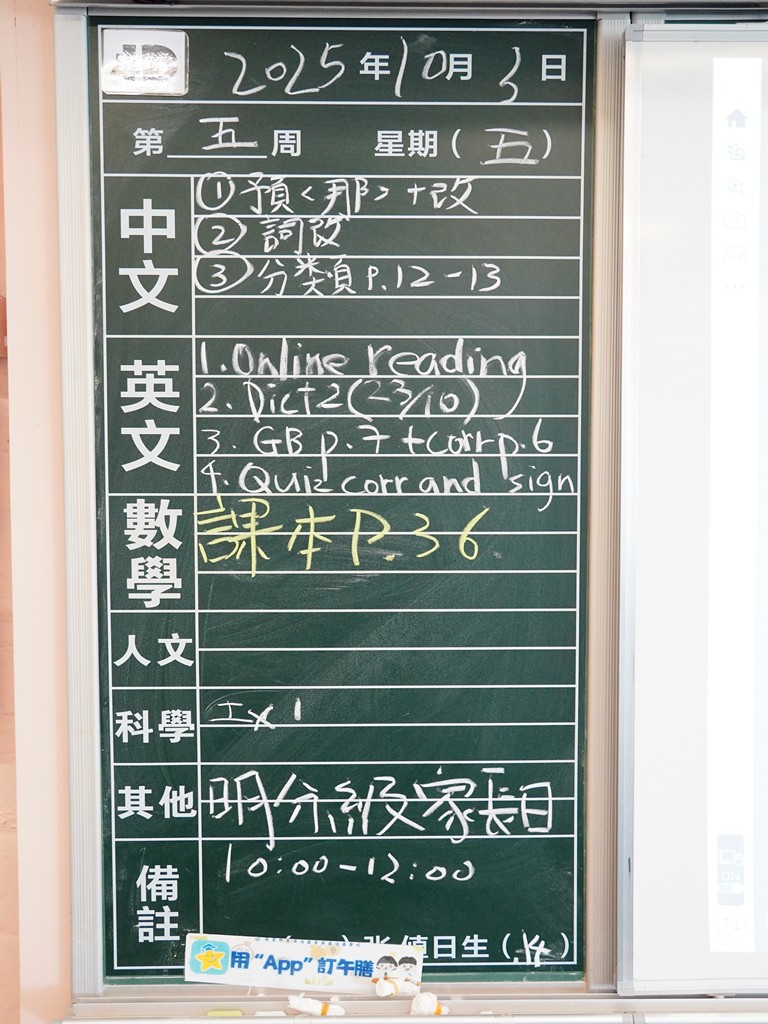 2025年10月3日
第五周 星期(五)
中文
①預<那>+改
②詞改
③分类頁P.12-13
英文
1.Online reading
2.Dict2(23/10)
3.GB p.7+corrp.6
4.Quiz corr and sign
數學
課本P.36
人文
科學
Ex1
其他
明分級家長日
備註
10:00-12:00
張 值日生( )
用“App”訂午膳
ON